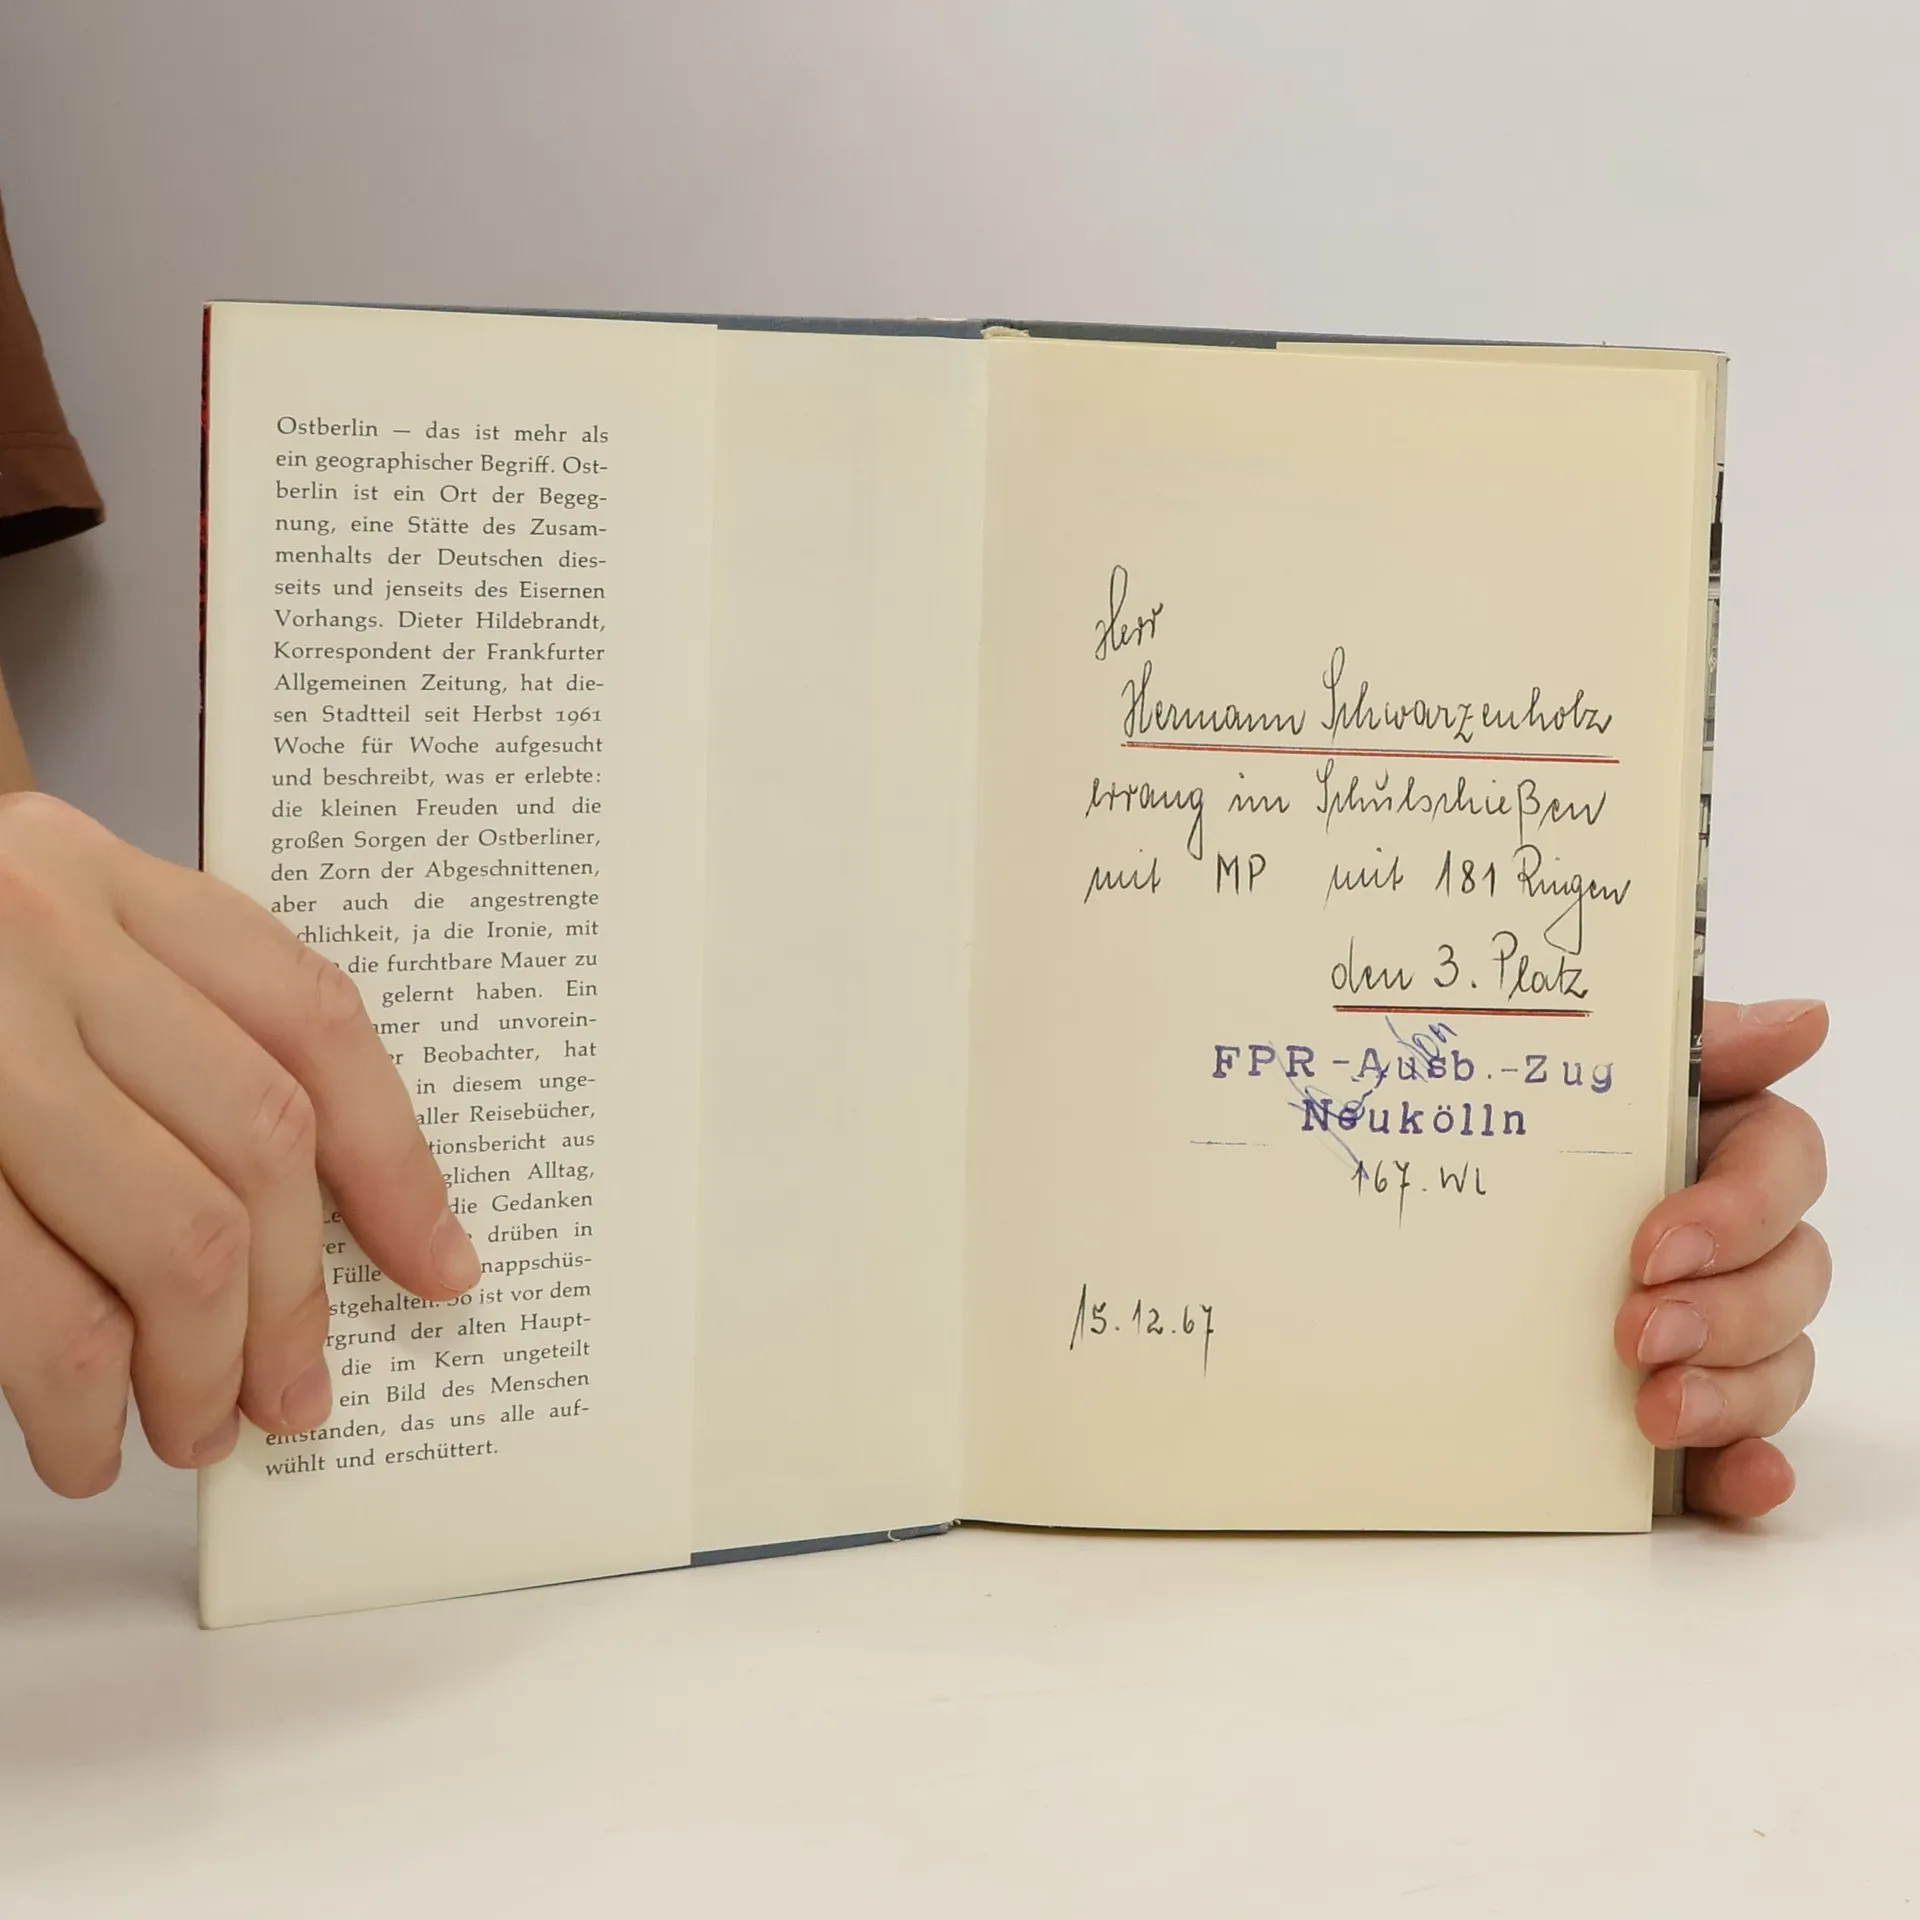 Ostberlin — das ist mehr als
ein geographischer Begriff. Ost-
berlin ist ein Ort der Begeg-
nung, eine Stätte des Zusam-
menhalts der Deutschen dies-
seits und jenseits des Eisernen
Vorhangs. Dieter Hildebrandt,
Korrespondent der Frankfurter
Allgemeinen Zeitung, hat die-
sen Stadtteil seit Herbst 1961
Woche für Woche aufgesucht
und beschreibt, was er erlebte:
die kleinen Freuden und die
großen Sorgen der Ostberliner,
den Zorn der Abgeschnittenen,
aber auch die angestrengte
chlichkeit, ja die Ironie, mit
die furchtbare Mauer zu
gelernt haben. Ein
amer und unvorein-
er Beobachter, hat
in diesem unge-
aller Reisebücher,
tionsbericht aus
glichen Alltag,
die Gedanken
drüben in
Fülle nappschüs-
stgehalten. So ist vor dem
rgrund der alten Haupt-
die im Kern ungeteilt
ein Bild des Menschen
entstanden, das uns alle auf-
wühlt und erschüttert.
Herr
Hermann Schwarzenholz
errang im Schulschießen
mit MP mit 181 Ringen
den 3. Platz
FPR-Ausb.-Zug
Neukölln
167. Wl
15.12.67